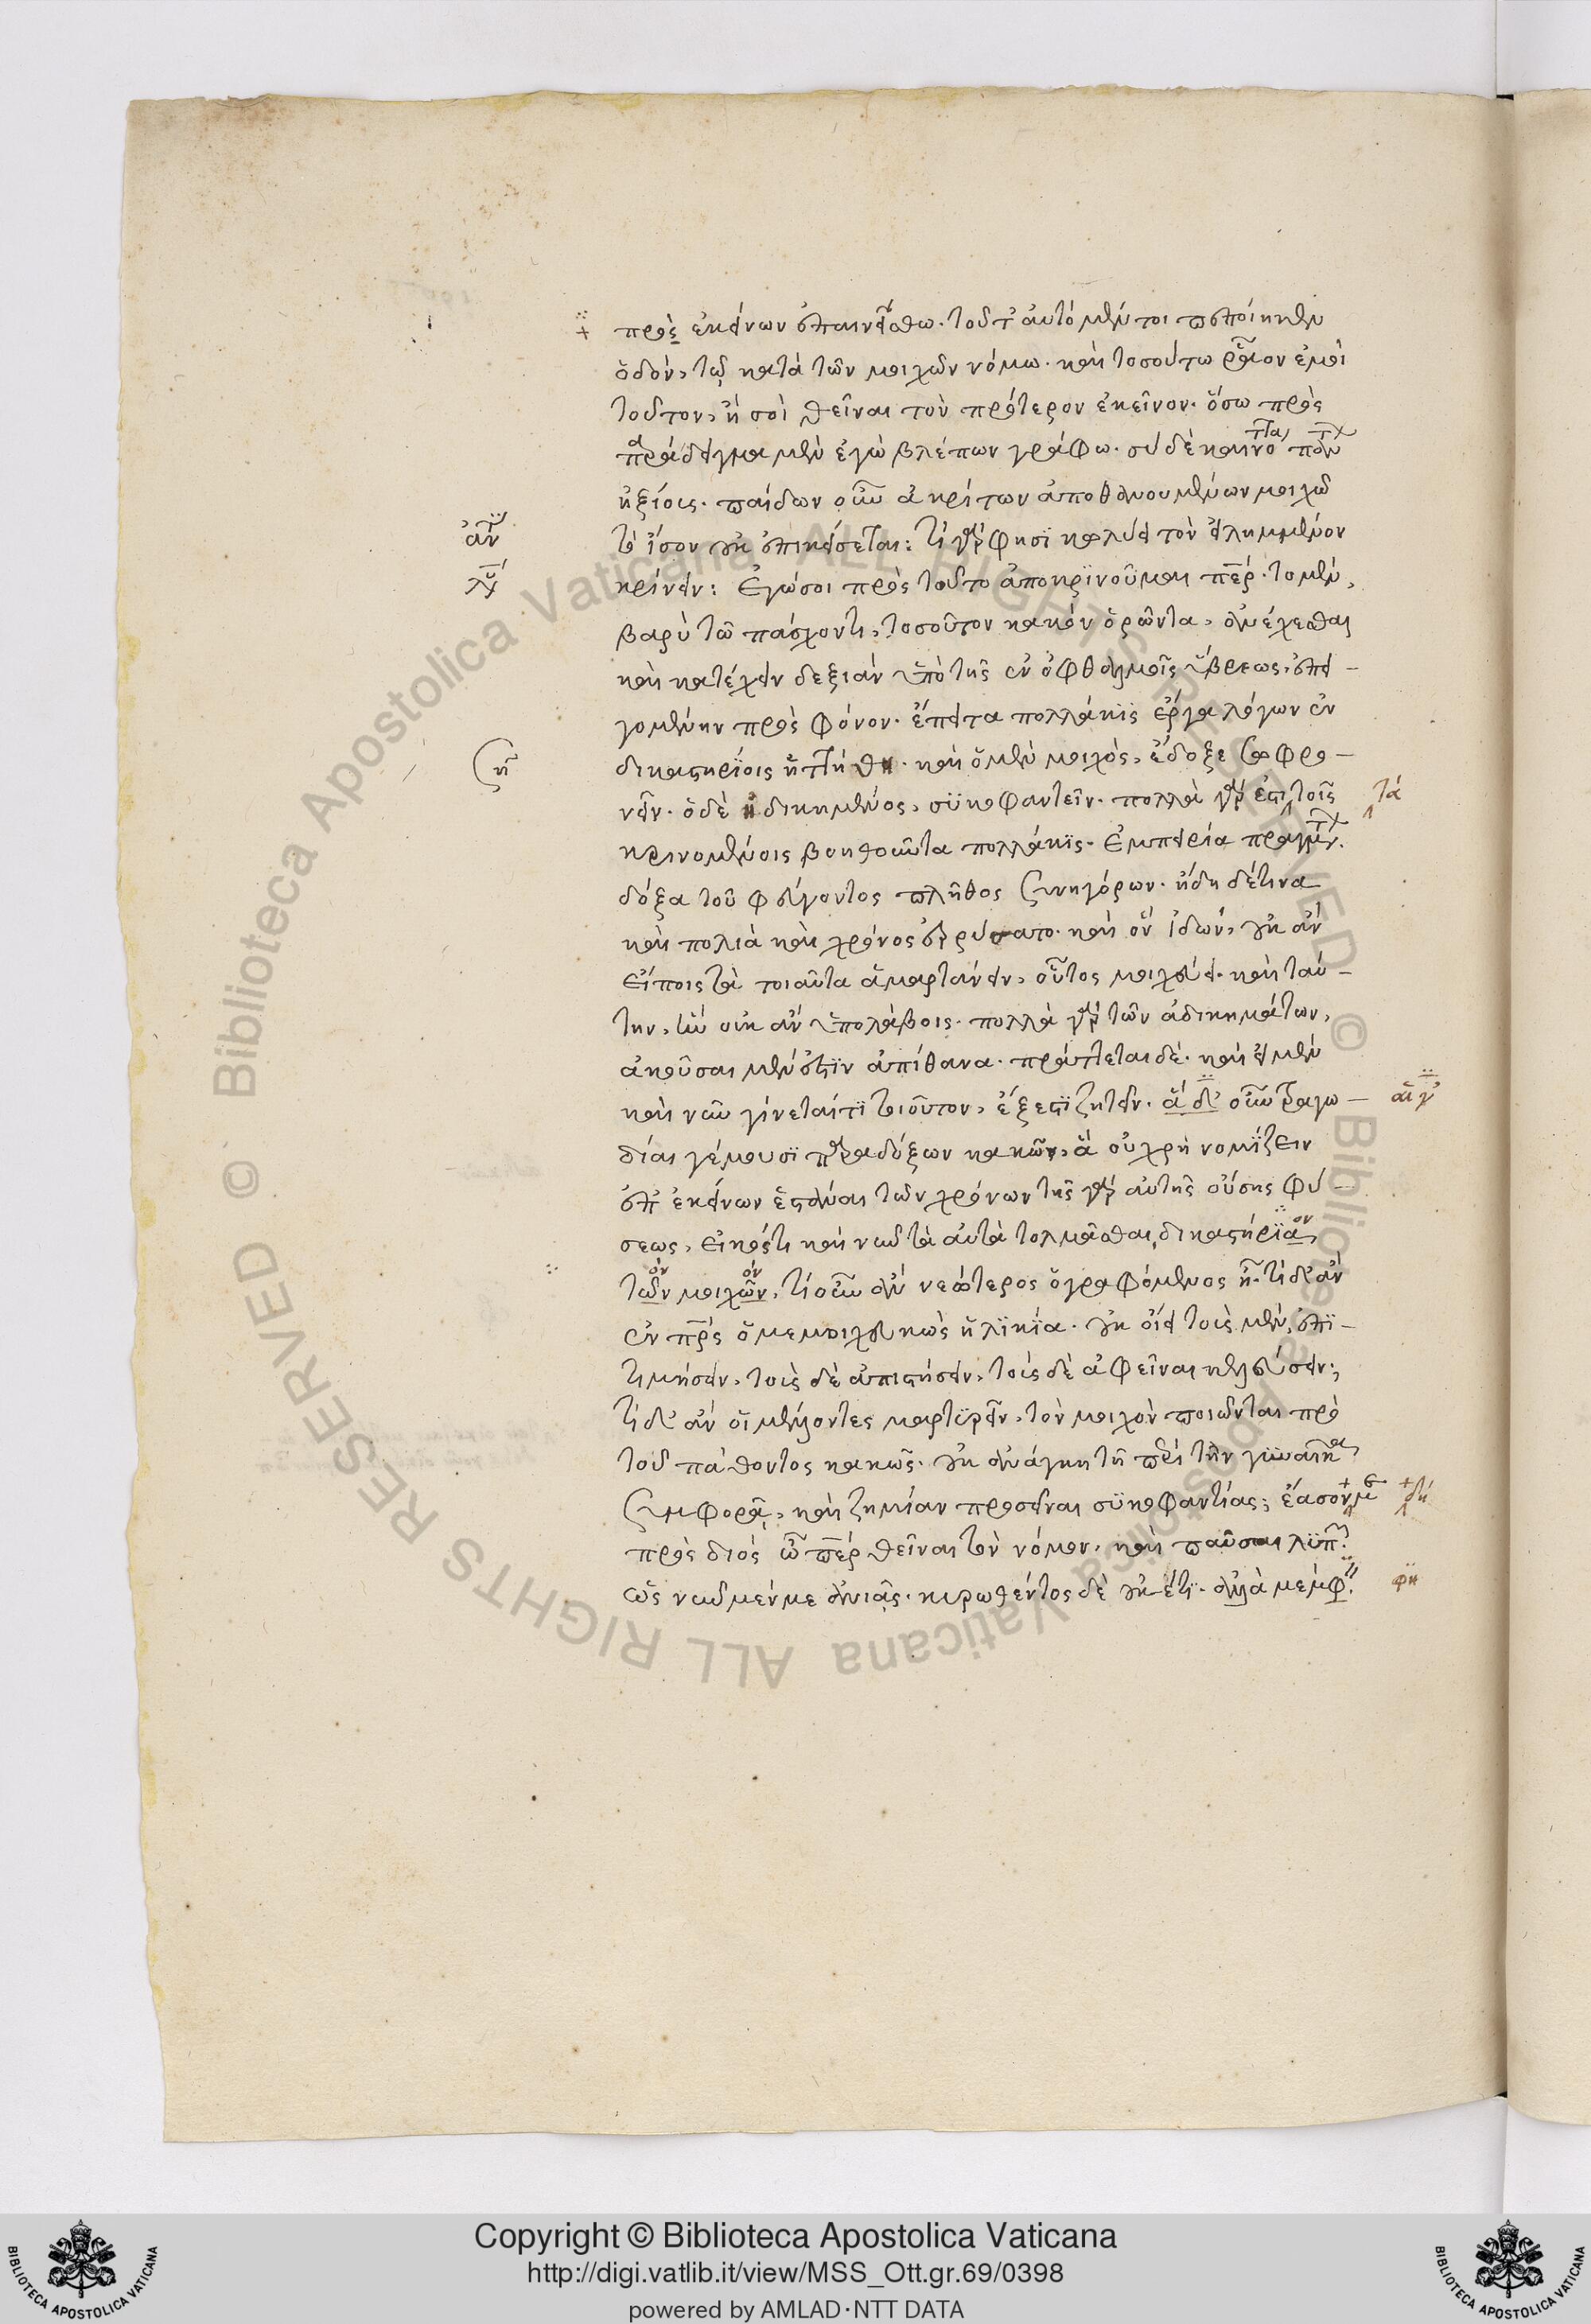 πρὸς ἐκείνων ἐπαινείσθω. τοῦτ' αὐτὸ μέντοι πεποίηκεν
ὁδὸν, τῷ κατὰ τῶν μοιχῶν νόμω. καὶ τοσούτω ῥᾷον ἐμοὶ
τοῦτον, ἢ σοὶ θεῖναι τὸν πρότερον ἐκεῖνον. ὅσω πρὸς
παράδειγμα μὲν ἐγὼ βλέπων γράφω. σὺ δὲ καινο
ἠξίους. παίδων οὖν ἀκρίτων ἀποθανουμένων μοιχῶν
ἂν
τὸ ἴσον οὐκ ἐπικείσεται; τί γάρ φησι κωλύει τὸν εἰλημμένον
λύ
κρίνειν; Ἐγώ σοι πρὸς τοῦτο ἀποκρινοῦμαι πέρ. τὸ μὲν,
βαρὺ τῶ πάσχοντι, τοσοῦτον κακὸν ὁρῶντα, ἀνέχεσθαι
καὶ κατέχειν δεξιὰν ὑπὸ τῆς ἐν ὀφθαλμοῖς ὕβρεως, ἐπει-
γομένην πρὸς φόνον. ἔπειτα πολλάκις ἔργα λόγων ἐν
δικαστηρίοις ἡττήθη. καὶ ὁ μὲν μοιχὸς, ἔδοξε σωφρο-
νεῖν. ὁ δὲ ἠδικημένος, συκοφαντεῖν. πολλὰ γὰρ ἐστι τοῖς τά
κρινομένοις βοηθοῦντα πολλάκις. ἐμπειρία πραγμ.
δόξα τοῦ φεύγοντος πλῆθος συνηγόρων. ἤδη δέ τινα
καὶ πολιὰ καὶ χρόνος ἐρρύσατο. καὶ ὃν ἰδὼν, οὐκ ἂν
εἴποις τὰ τοιαῦτα ἁμαρτάνειν, οὗτος μοιχεύει. καὶ ταύ-
την, ἣν οὐκ ἂν ὑπολάβοις. πολλὰ γὰρ τῶν ἀδικημάτων,
ἀκοῦσαι μέν ἐστιν ἀπίθανα. πράττεται δέ. καὶ εἰ μὲν
καὶ νῦν γίνεταί τι τοιοῦτον, ἔξεστι ζητεῖν. αἱ δ' οὖν τραγω- αἵ γ'
δίαι γέμουσι παραδόξων κακῶν, ἃ οὐ χρὴ νομίζειν
ἐπ' ἐκείνων ἑστάναι τῶν χρόνων τῆς γὰρ αὐτῆς οὔσης φύ-
σεως, εἰκὸς τι καὶ νῦν τὰ αὐτὰ τολμᾶσθαι, δικαστήρια,
τῶν μοιχῶν, τί οὖν ἂν νεώτερος ὁ γραφόμενος ἦ. τί δ' ἂν
ἐν πρὸς ὁ μεμοιχευκὼς ἡλικία. οὐκ οἴει τοὺς μὲν, ἐπι-
τιμήσειν, τοὺς δὲ ἀπιστήσειν, τοὺς δὲ ἀφεῖναι κελεύσειν;
τί δ' ἂν οἱ μέλλοντες μαρτυρεῖν, τὸν μοιχὸν ποιῶνται πρὸ
τοῦ παθόντος κακῶς. οὐκ ἀνάγκη τῇ περὶ τὴν γυναῖκα
συμφορᾷ, καὶ ζημίαν προσεῖναι συκοφαντίας; ἔασον μ δή
πρὸς διὸς ὦ πέρ θεῖναι τὸν νόμον. καὶ παῦσαι λυπ.
ὡς νῦν μέν με ἀνιᾷς. κυρωθέντος δὲ οὐκ έτι. ἀλλὰ μεμφ. φη